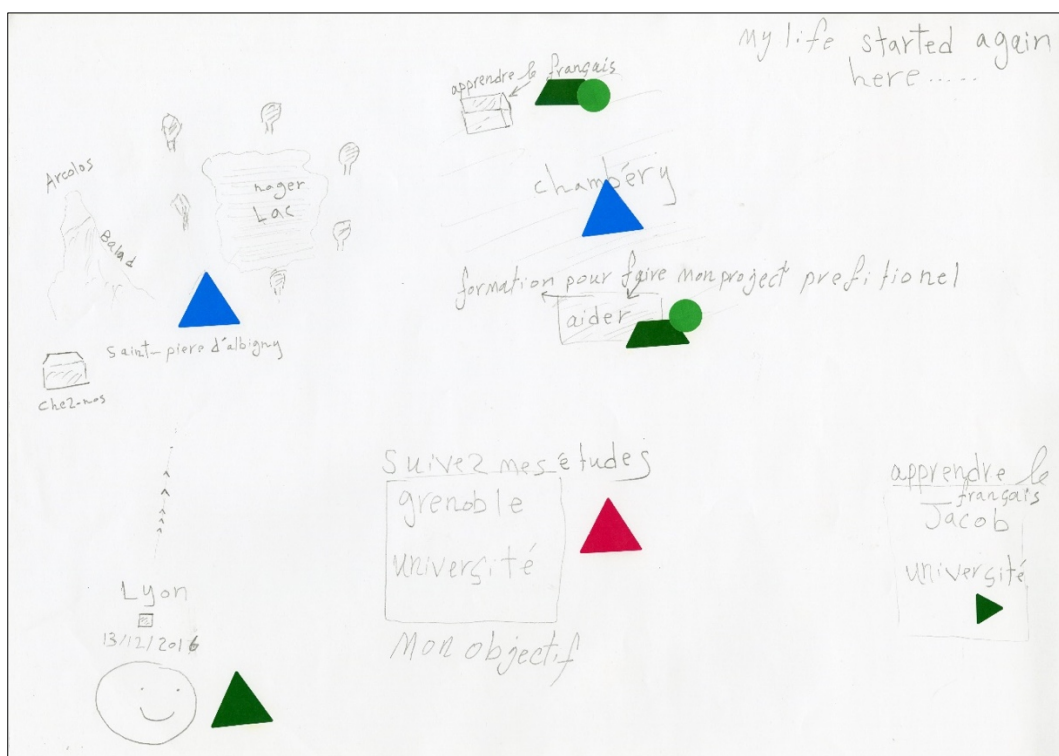 My life started again
here.....
apprendre le français
Arcolos
Balad
nager
Lac
chambéry
formation pour faire mon project prefitionel
aider
Saint-piere d'albigny
chez-nos
Suivez mes études
grenoble
université
Mon objectif
apprendre le
français
Jacob
université
Lyon
13/12/2016